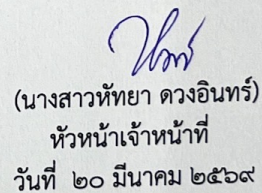 (นางสาวหัทยา ดวงอินทร์)
หัวหน้าเจ้าหน้าที่
วันที่ ๒๐ มีนาคม ๒๕๖๙